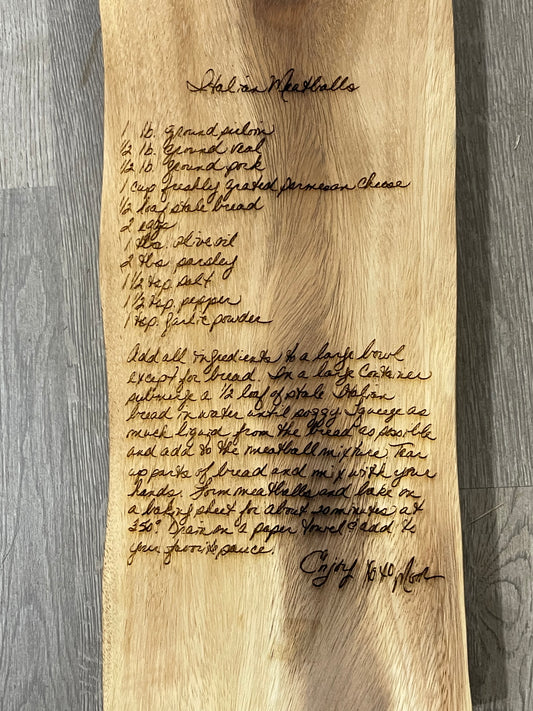 Italian Meatballs
1 lb. ground sirloin
1/2 lb. ground veal
1/2 lb. ground pork
1 cup freshly grated parmesan cheese
1/2 loaf stale bread
2 eggs
1 tbs. olive oil
2 tbs parsley
1 1/2 tsp. salt
1 1/2 tsp. pepper
1 tsp. garlic powder
Add all ingredients to a large bowl
except for bread. In a large container
submerge a 1/2 loaf of stale Italian
bread in water until soggy. Squeeze as
much liquid from the bread as possible
and add to the meatball mixture. Tear
up parts of bread and mix with your
hands. Form meatballs and bake on
a baking sheet for about 20 minutes at
350° Drain on a paper towel & add to
your favorite sauce.
Enjoy XOXO, Mom